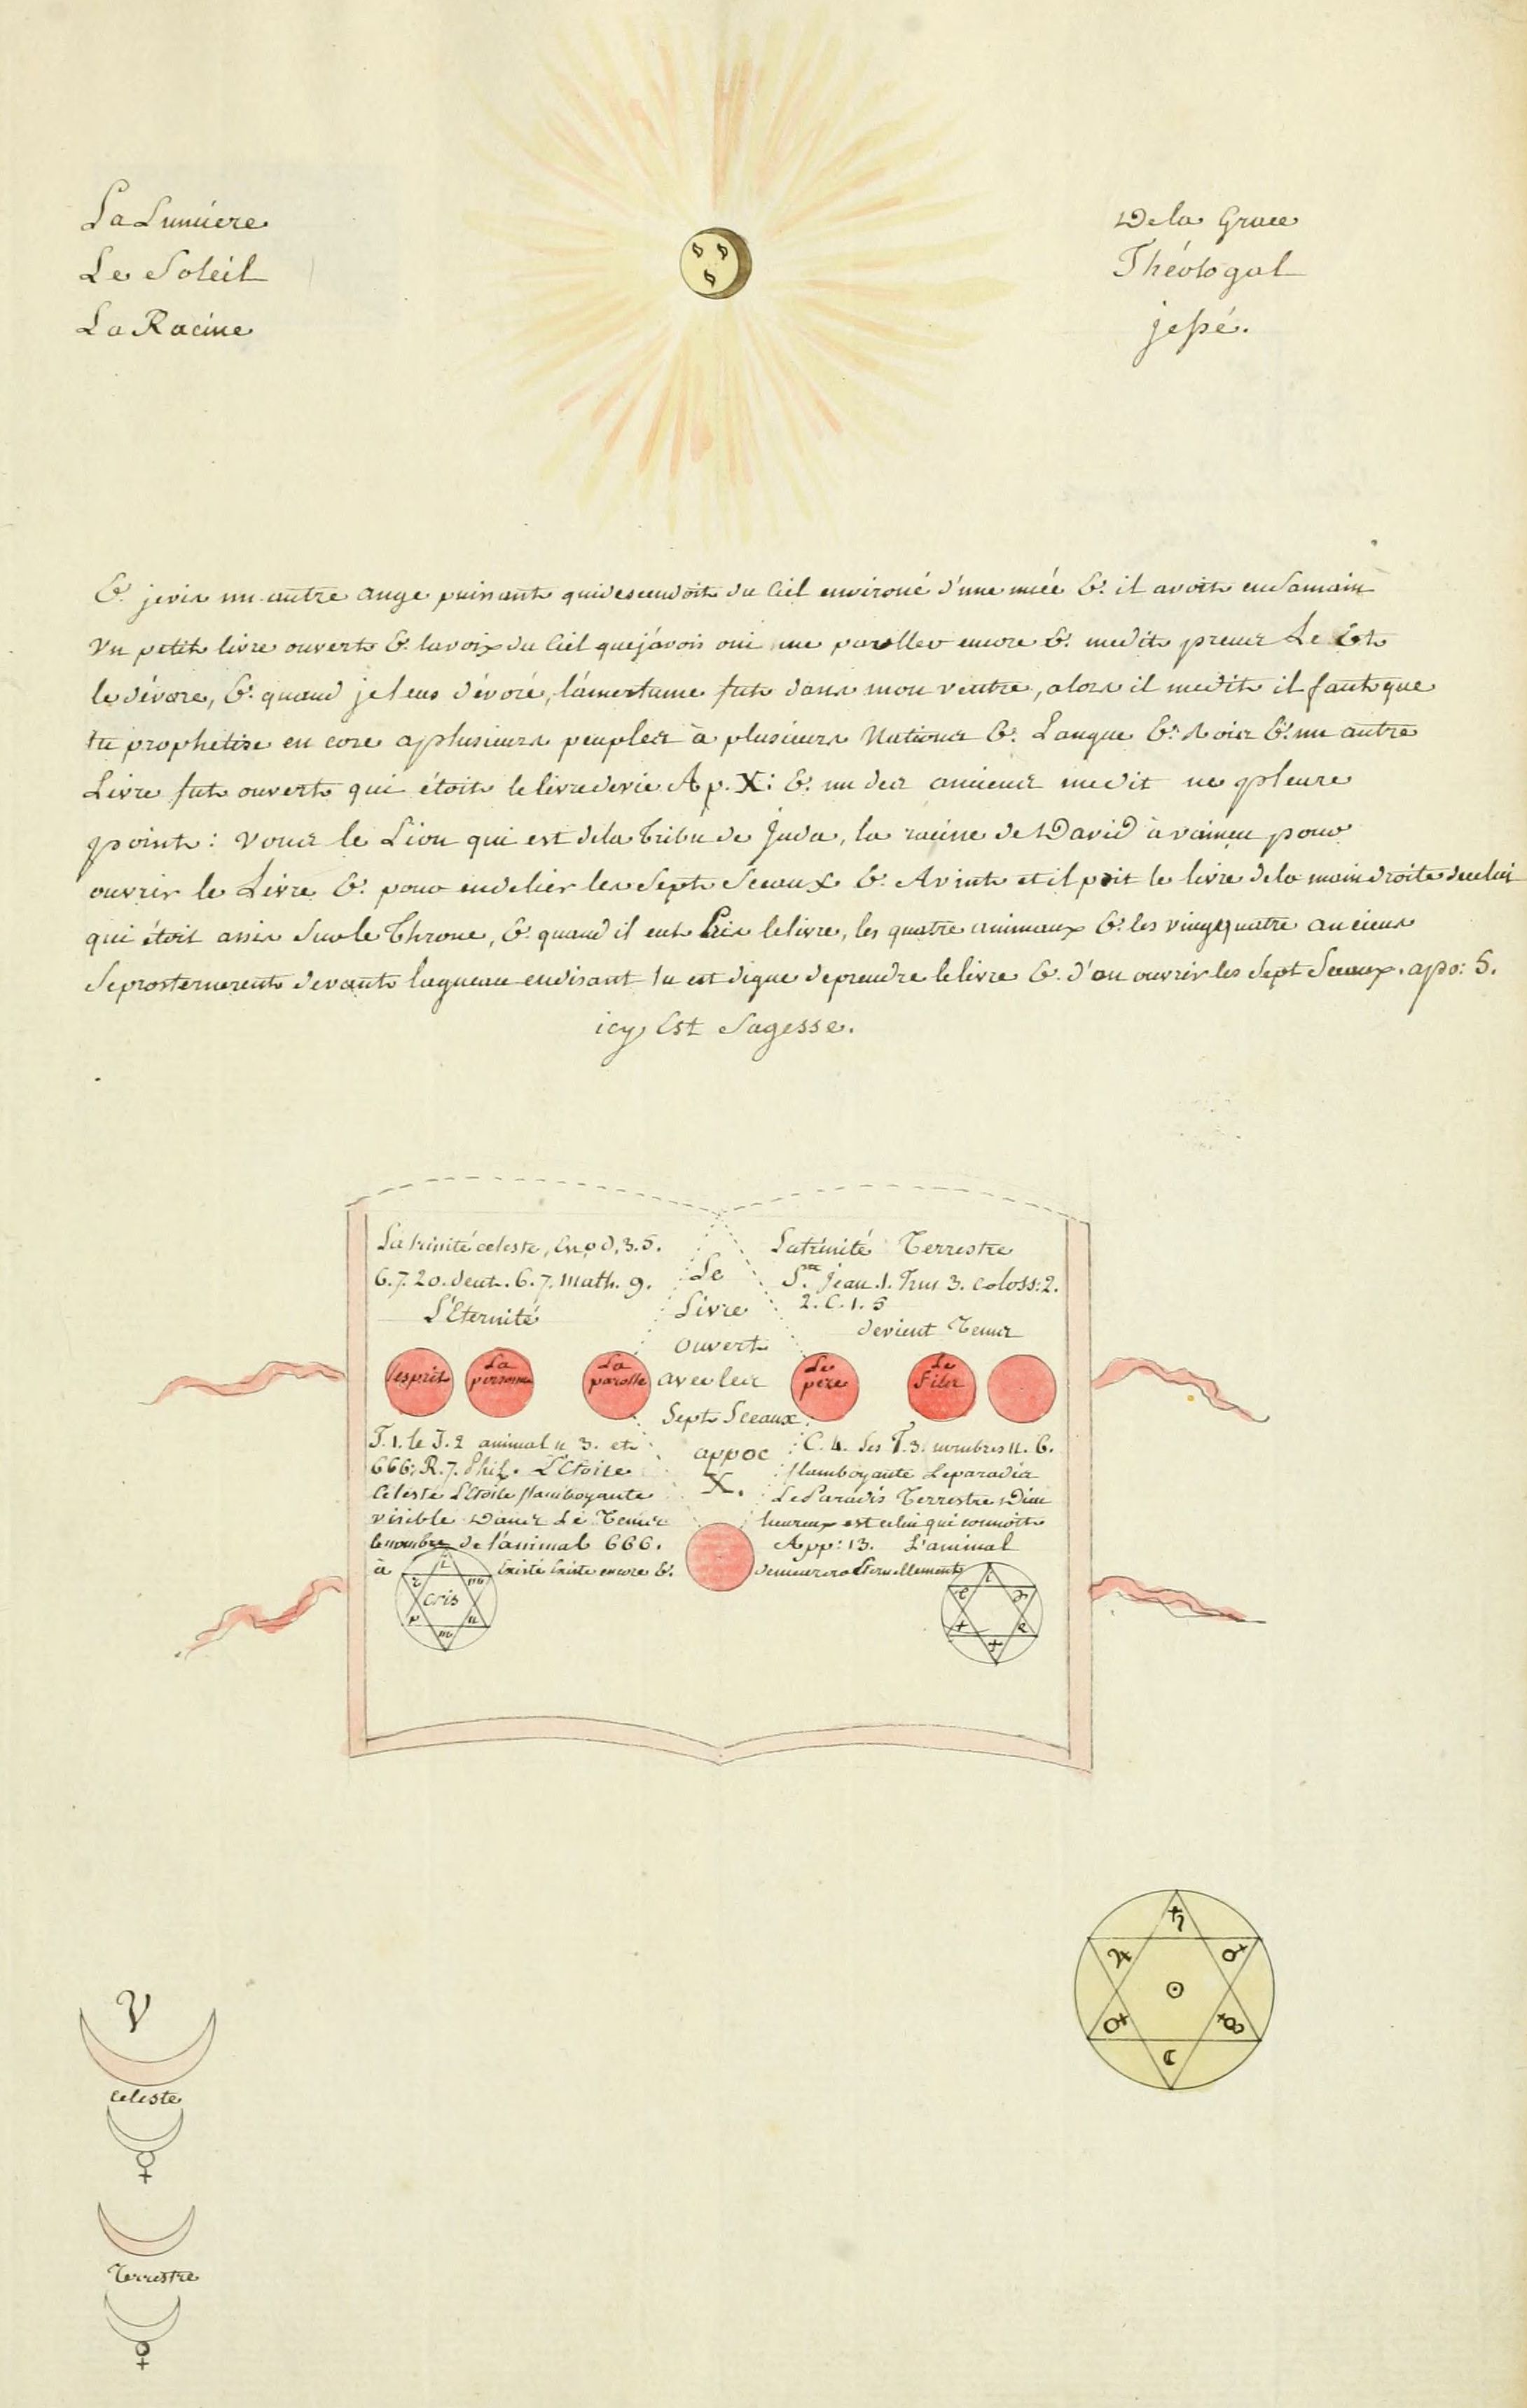 La Lumiere De la Grace
Le Soleil Théologal
La Racine jessé.
& je vis un autre ange puissant qui descendoit du Ciel environé d'une nuée & il avoit en sa main
Un petit livre ouvert & la voix du Ciel que j'avois oui me parller encore & me dit prener Le Et
le dévore, & quand je l'eus dévoré, l'amertume fut dans mon ventre, alors il me dit il faut que
tu prophetise en core a plusieurs peuples à plusieurs Nations & Langue & Rois & un autre
Livre fut ouvert qui étoit le livre de vie Ap. X: & un des anciens me dit ne pleure
point: voici le Lion qui est de la Tribu de Juda, la racine de David à vaincu pour
ouvrir le Livre & pour en delier les Sept Sceaux & Avint et il prit le livre de la main droite de celui
qui étoit assis sur le Throne, & quand il eut Pris le livre, les quatre animaux & les vingt quatre anciens
Se prosternerent devant l'agneau en disant tu est digne de prendre le livre & d'en ouvrir les Sept Sceaux. apo: 5.
icy Est Sagesse.
La trinité celeste, 3.5.
6.7.20. deut. 6.7. math. 9.
L'Eternité
Le
Livre
ouvert
avec les
Sept Sceaux
appoc
X.
La trinité Terrestre
St. Jean. 1. 3. coloss: 2.
2. C. 1. 5
devient Tems
l'esprit
La
personne
La
parolle
Le
pere
Le
Fils
T. 1. le T. 2 animal n 3. et
666: R. 7. Phil. L'Etoile
Celeste L'Etoile flamboyante
visible Dans Le Tems
le nombre de l'animal 666.
à Existé Existe encore &
C. 4. des T. 3. nombres 11. 6.
flamboyante Le paradis
Le Paradis Terrestre Dieu
heureux est celui qui connoitt
App: 13. L'animal
demeurera Eternellement
cris
♄
♃ ♂
☉
♀ ☿
☾
V
Celeste
☿
Terrestre